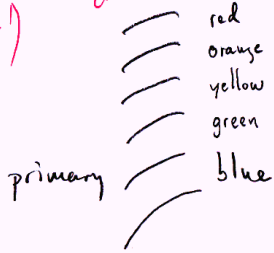 red
orange
yellow
green
primary blue